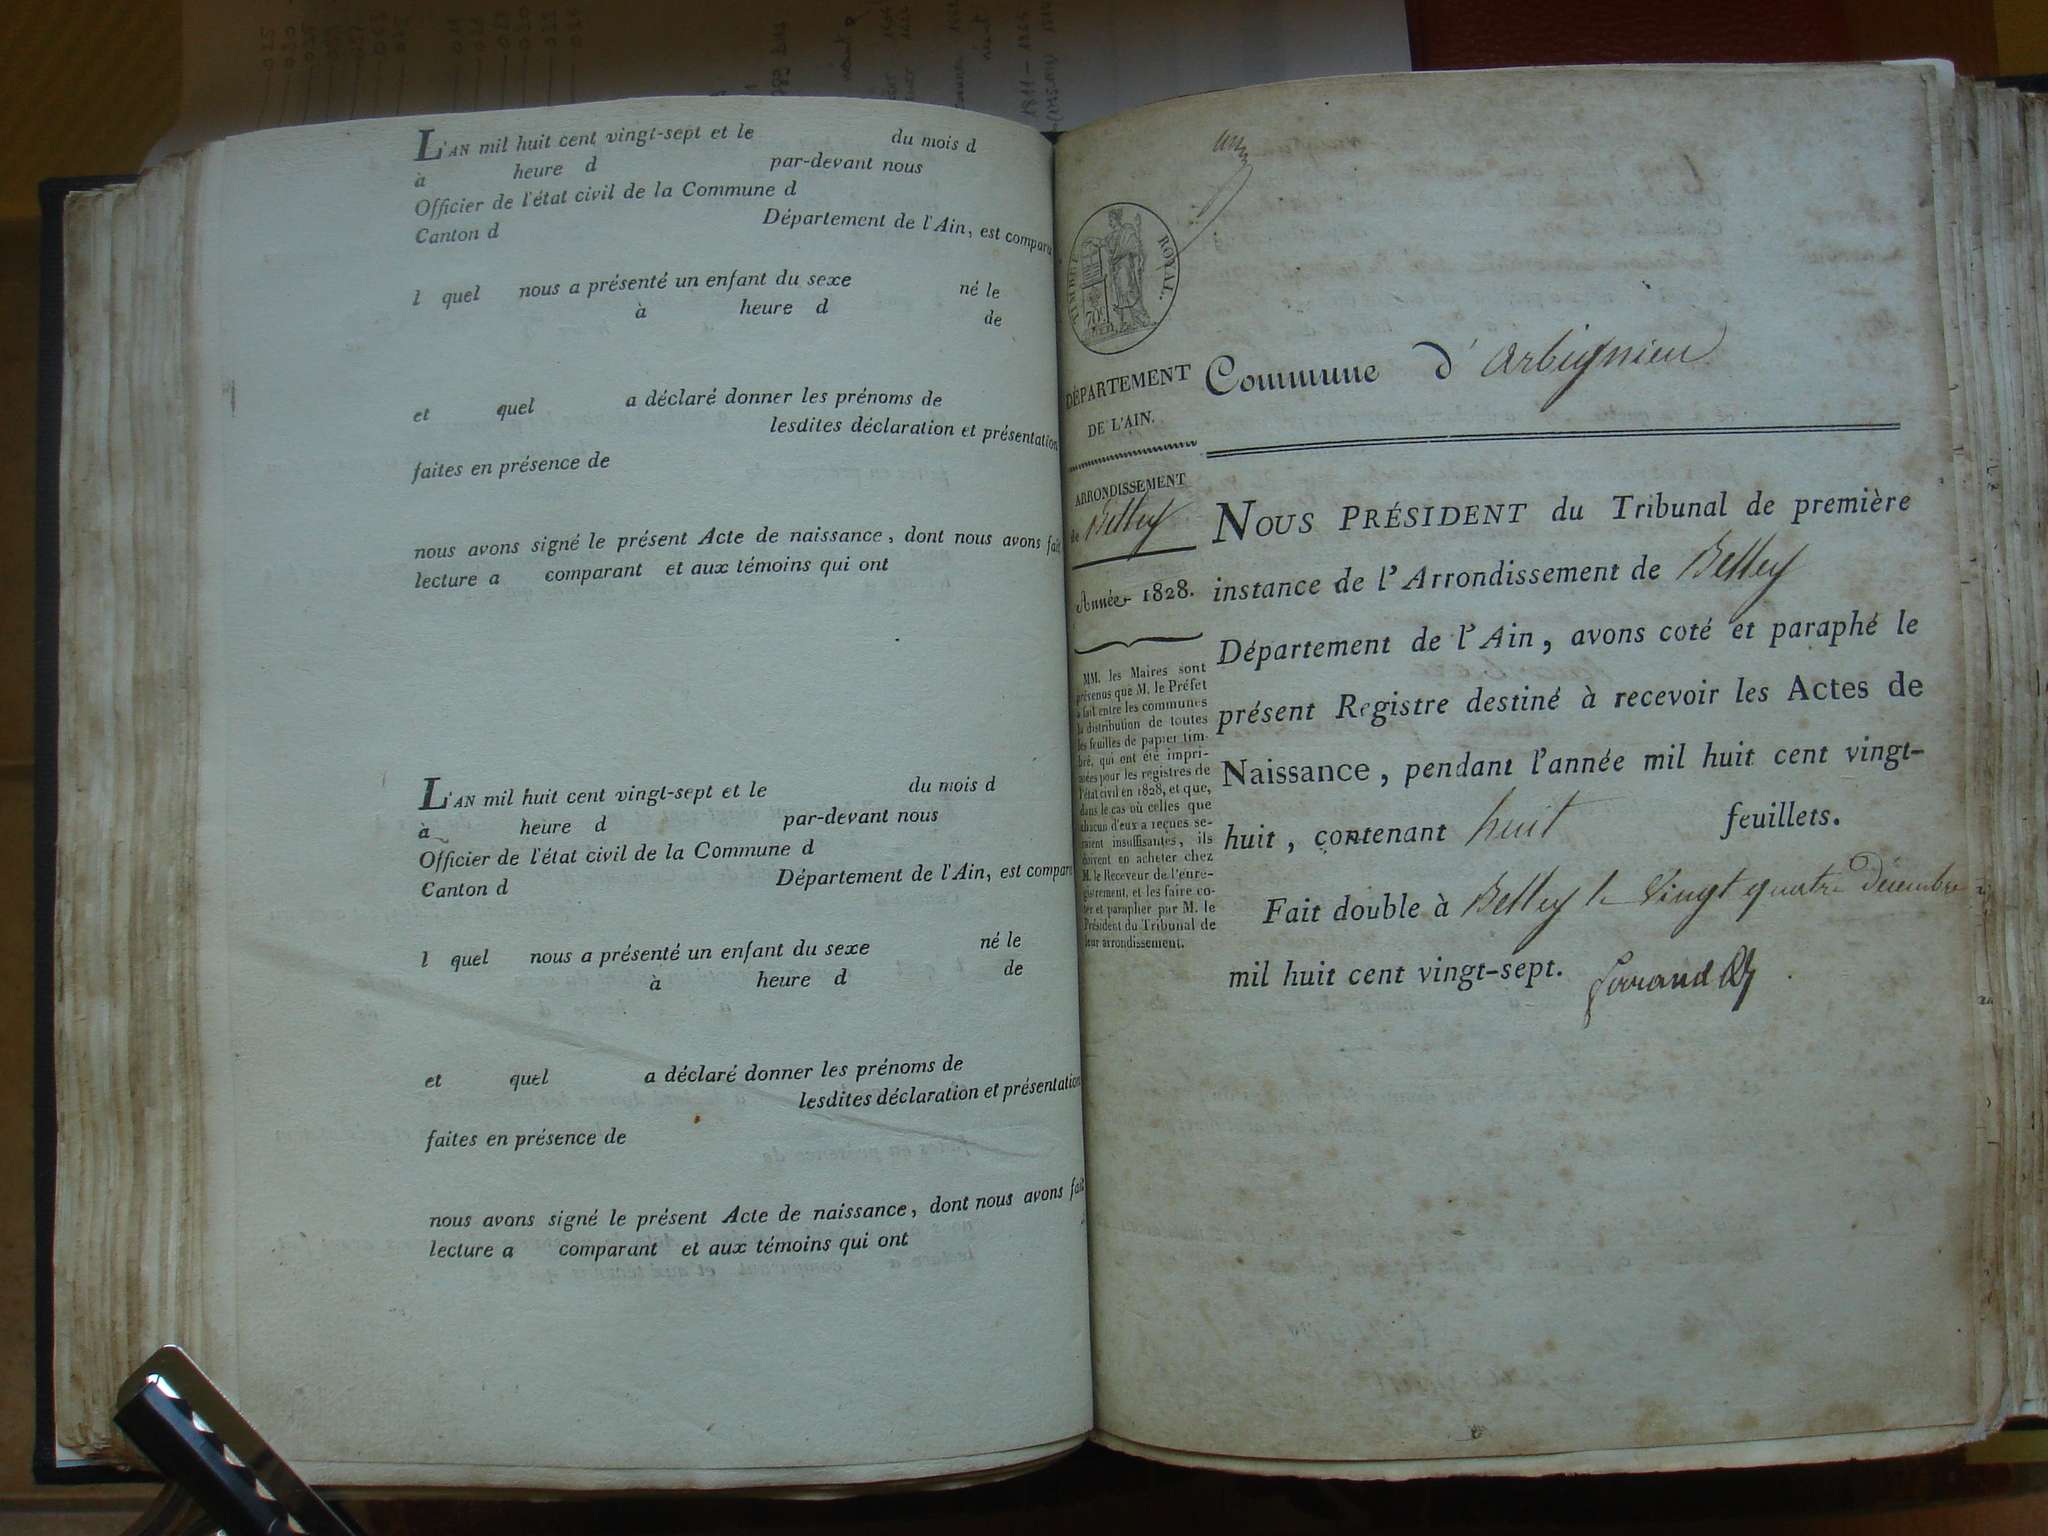 L'AN mil huit cent vingt-sept et le du mois d
à heure d par-devant nous
Officier de l'état civil de la Commune d
Canton d Département de l'Ain, est comparu
l quel nous a présenté un enfant du sexe né le
à heure d de
et quel a déclaré donner les prénoms de
lesdites déclaration et présentation
faites en présence de
nous avons signé le présent Acte de naissance, dont nous avons fait
lecture a comparant et aux témoins qui ont
L'AN mil huit cent vingt-sept et le du mois d
à heure d par-devant nous
Officier de l'état civil de la Commune d
Canton d Département de l'Ain, est comparu
l quel nous a présenté un enfant du sexe né le
à heure d de
et quel a déclaré donner les prénoms de
lesdites déclaration et présentation
faites en présence de
nous avons signé le présent Acte de naissance, dont nous avons fait
lecture a comparant et aux témoins qui ont
TIMBRE ROYAL.
DÉPARTEMENT
DE L'AIN.
ARRONDISSEMENT
de Belley
Année 1828.
MM. les Maires sont
prévenus que M. le Préfet
a fait entre les communes
la distribution de toutes
les feuilles de papier tim-
bré, qui ont été impri-
mées pour les registres de
l'état civil en 1828, et que,
dans le cas où celles que
chacun d'eux a reçues se-
raient insuffisantes, ils
doivent en acheter chez
M. le Receveur de l'enre-
gistrement, et les faire co-
ter et parapher par M. le
Président du Tribunal de
leur arrondissement.
Commune d'arbignieu
NOUS PRÉSIDENT du Tribunal de première
instance de l'Arrondissement de Belley
Département de l'Ain, avons coté et paraphé le
présent Registre destiné à recevoir les Actes de
Naissance, pendant l'année mil huit cent vingt-
huit, contenant huit feuillets.
Fait double à Belley le Vingt quatre décembre
mil huit cent vingt-sept.